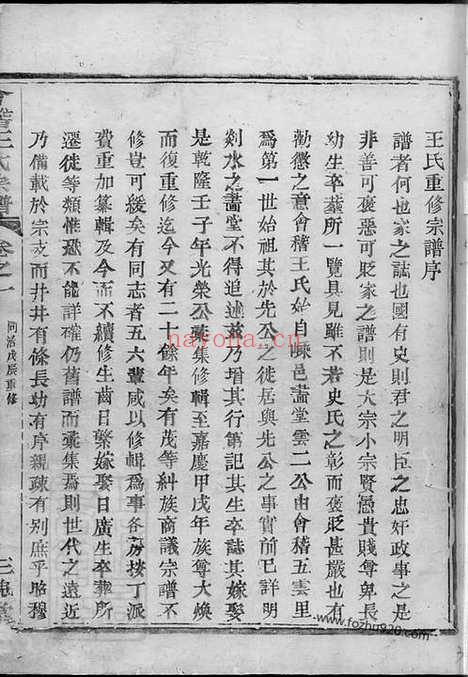 王氏重修宗譜序
譜者何也家之誌也國有史則君之明臣之忠奸政事之是
非善可褒惡可貶家之譜則是大宗小宗賢愚貴賤尊卑長
幼生卒塟所一覽具見雖不若史氏之彰而褒貶甚嚴也有
勸懲之意會稽王氏始自嵊邑畵堂雲二公由會稽五雲里
爲第一世始祖其於先公之徙居與先公之事實前而無譜
剡水之畵堂不得追述茲乃增其行第記其生卒誌其嫁娶
是乾隆壬子年光榮公纂集修輯至嘉慶甲戌年族尊大煥
而復重修迄今又有二十餘年矣有茂等糾族商議宗譜不
修豈可緩矣有同志者五六輩咸以修輯爲事各房按丁派
費重加纂輯及今而不續修生齒日繁嫁娶日廣生卒葬所
遷徙等類惟恐不能詳確仍舊譜而彙集焉則世代之遠近
乃備載於宗支而井井有條長幼有序親疎有別庶乎昭穆
會稽王氏宗譜 卷之一 同治戊辰重修 三槐堂
nayona.cn
www.fozhu920.com